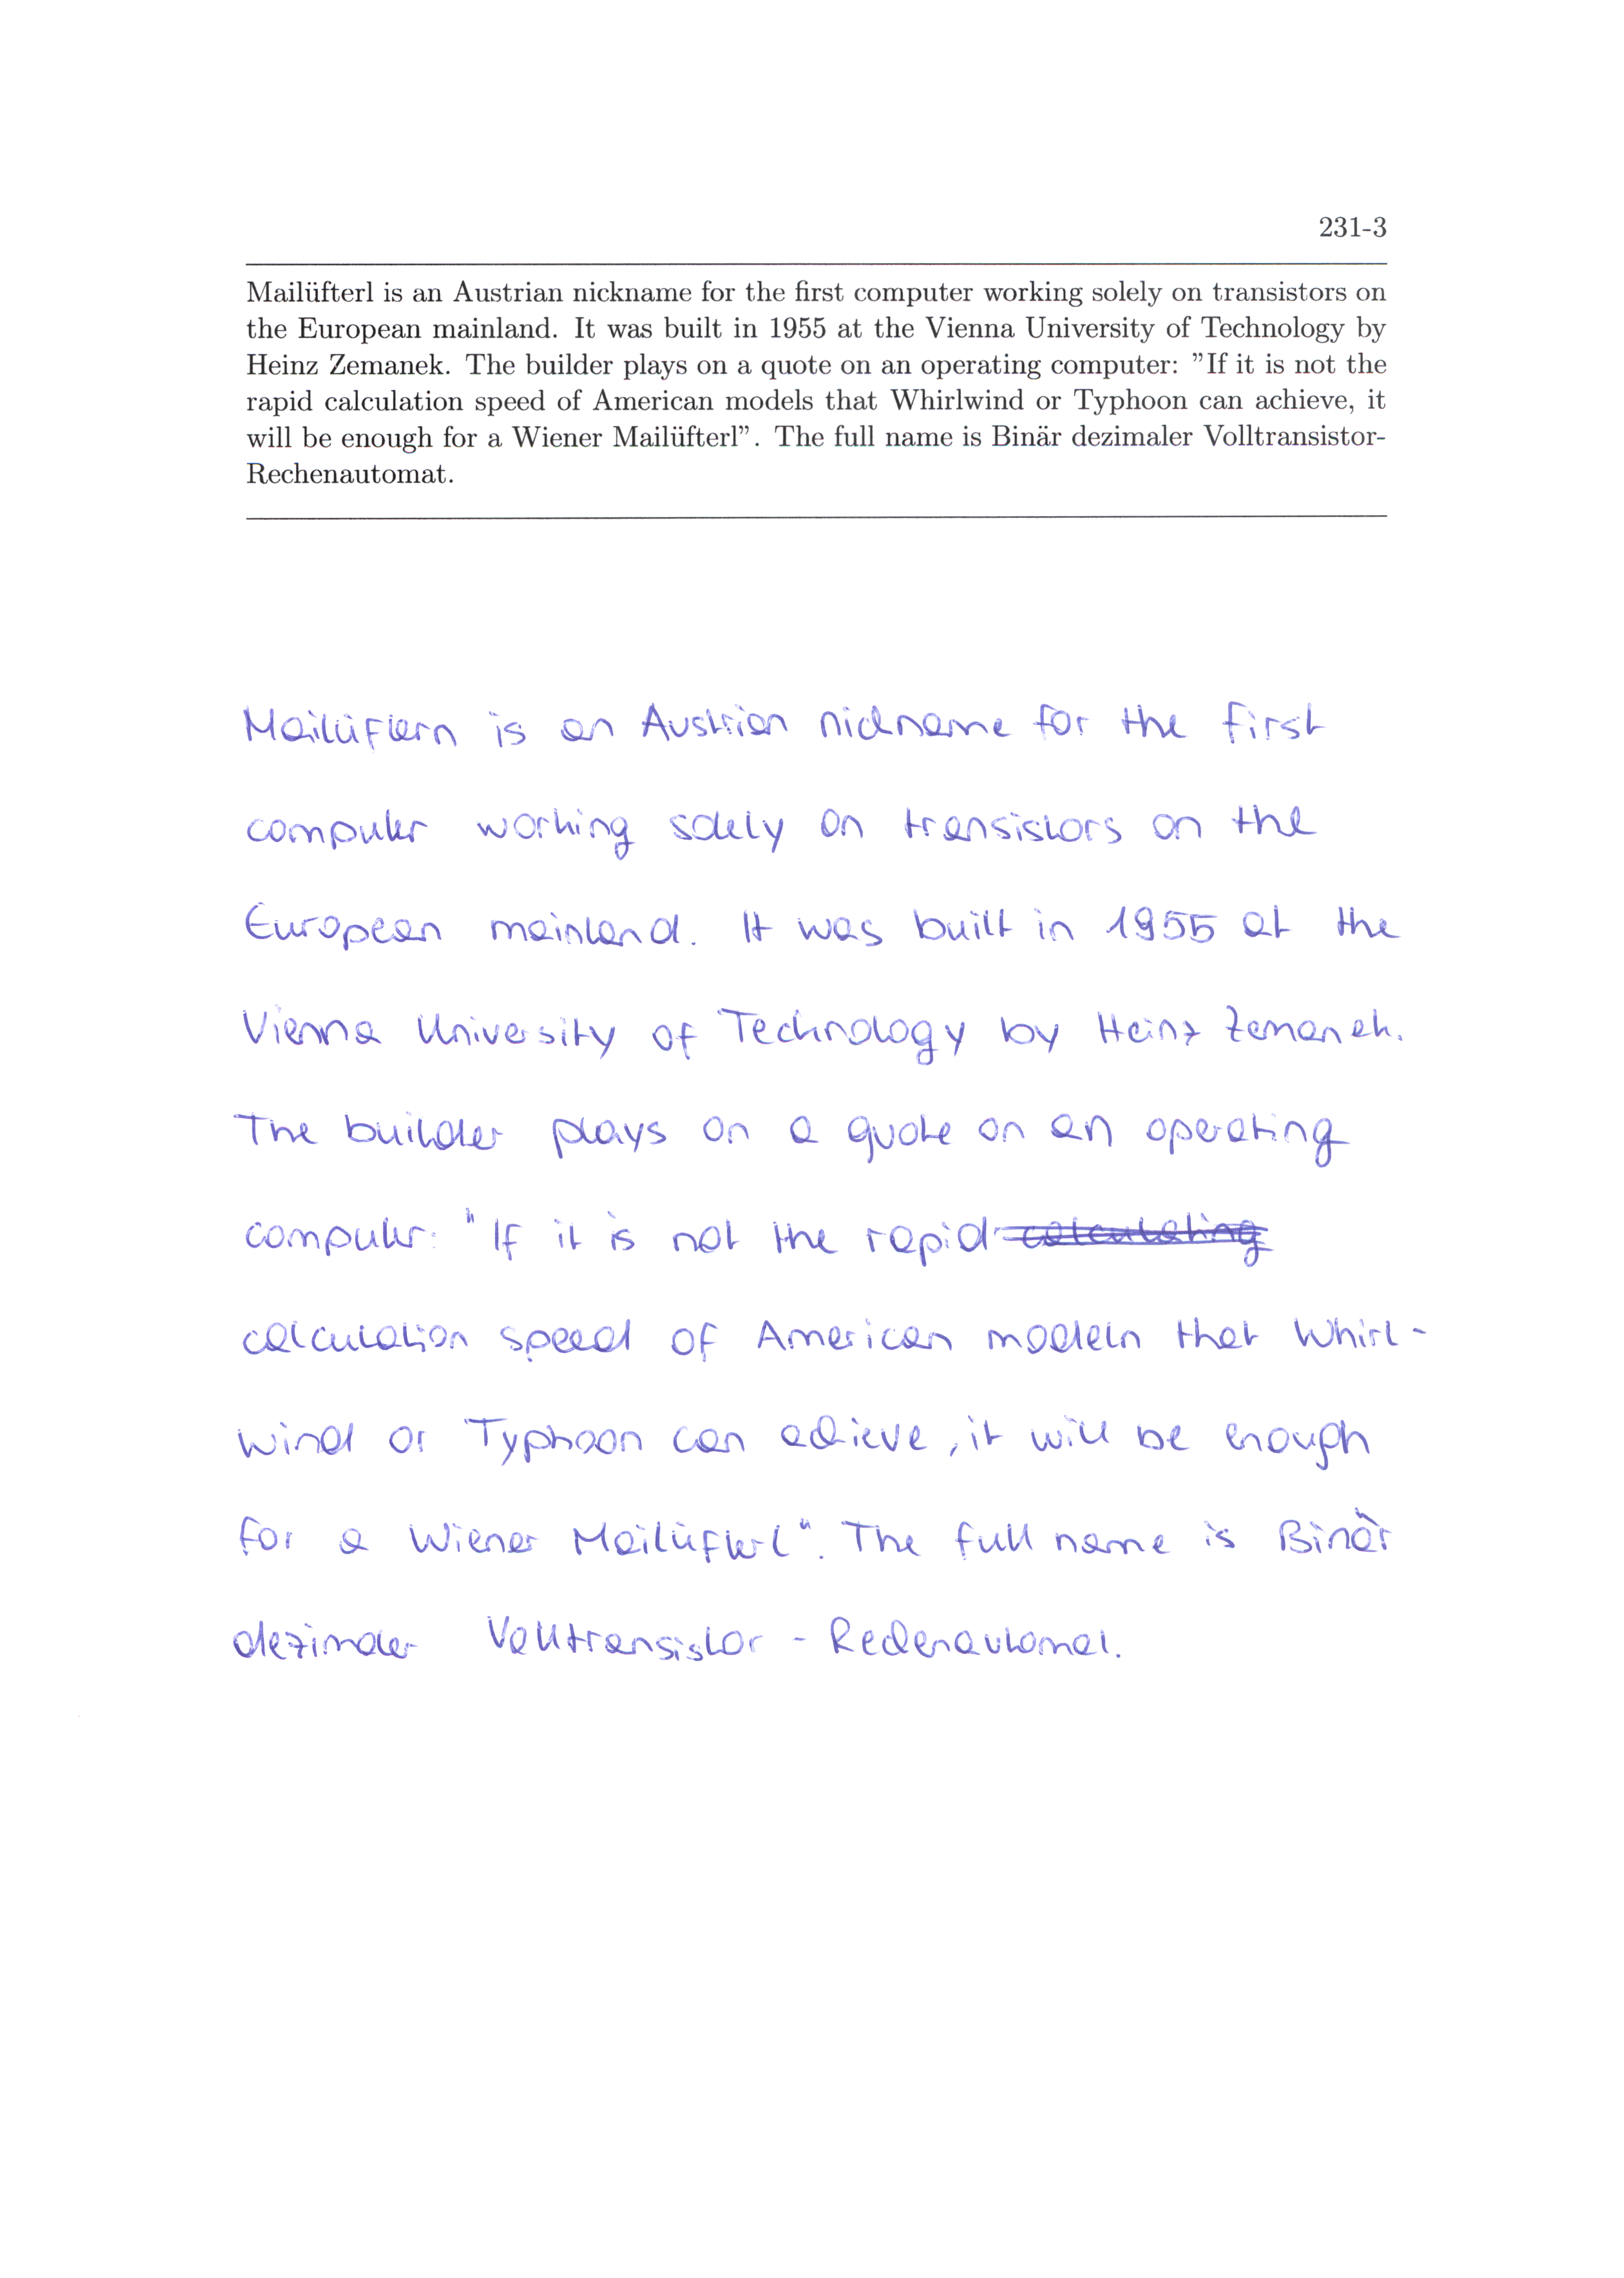 231-3
Mailüfterl is an Austrian nickname for the first computer working solely on transistors on
the European mainland. It was built in 1955 at the Vienna University of Technology by
Heinz Zemanek. The builder plays on a quote on an operating computer: ”If it is not the
rapid calculation speed of American models that Whirlwind or Typhoon can achieve, it
will be enough for a Wiener Mailüfterl”. The full name is Binär dezimaler Volltransistor-
Rechenautomat.
Mailüftern is an Austrian nickname for the first
computer working solely on transistors on the
European mainland. It was built in 1955 at the
Vienna University of Technology by Heinz Zemanek.
The builder plays on a quote on an operating
computer: "If it is not the rapid calculating
calculation speed of American modeln that Whirl-
wind or Typhoon can achieve, it will be enough
for a Wiener Mailüfterl". The full name is Binär
dezimaler Volltransistor - Rechenautomat.